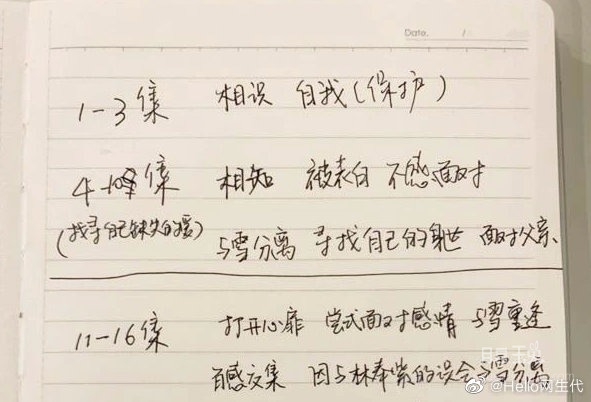 Date. /
1-3集 相识 自我(保护)
4-10集 相知 被表白 不感面对
(找寻自己缺失的爱) 与雪分离 寻找自己的身世 面对父亲
11-16集 打开心扉 尝试面对感情 与雪重逢
百感交集 因与林奉紫的误会与雪分离
@Hello网生代